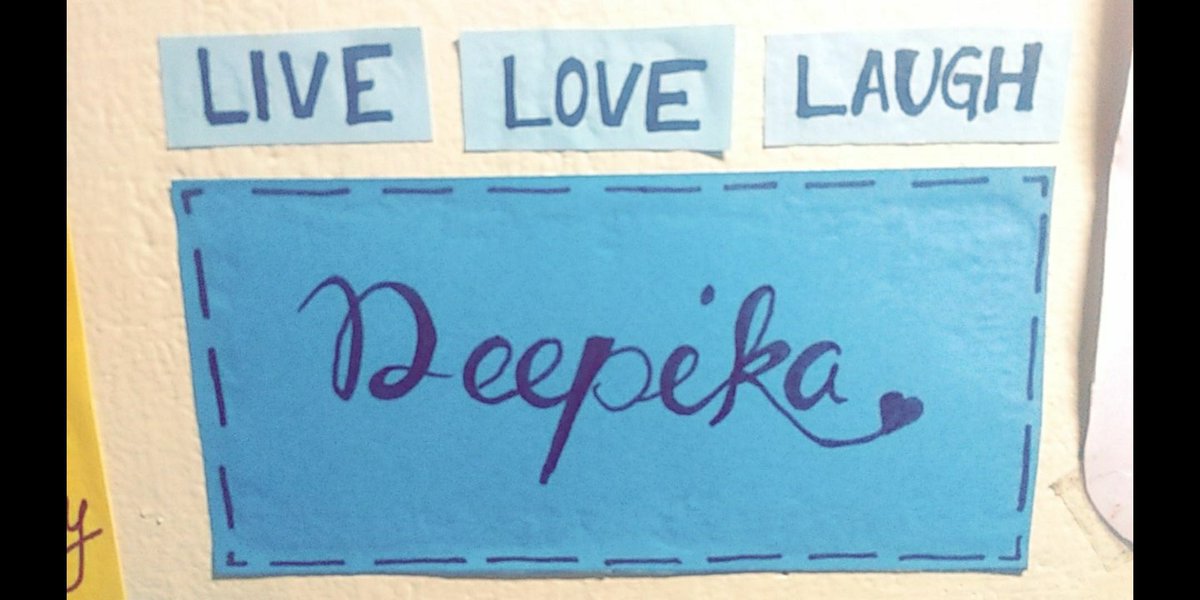 LIVE LOVE LAUGH
Deepika
y